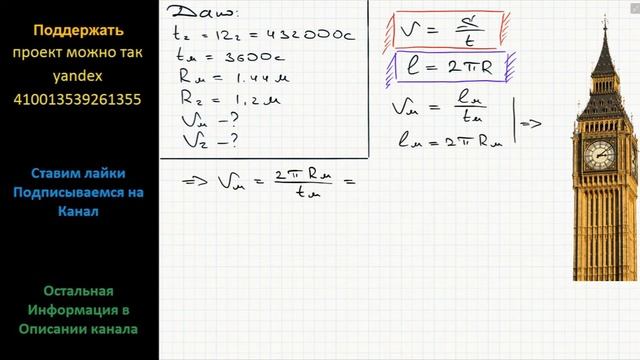 Поддержать
проект можно так
yandex
410013539261355
Ставим лайки
Подписываемся на
Канал
Остальная
Информация в
Описании канала
Дано:
t₂ = 12ч = 432000с
tм = 3600с
Rм = 1.44 м
R₂ = 1,2 м
Vм - ?
V₂ - ?
V = S/t
l = 2πR
Vм = lм/tм
lм = 2πRм
=>
=> Vм = 2πRм/tм =